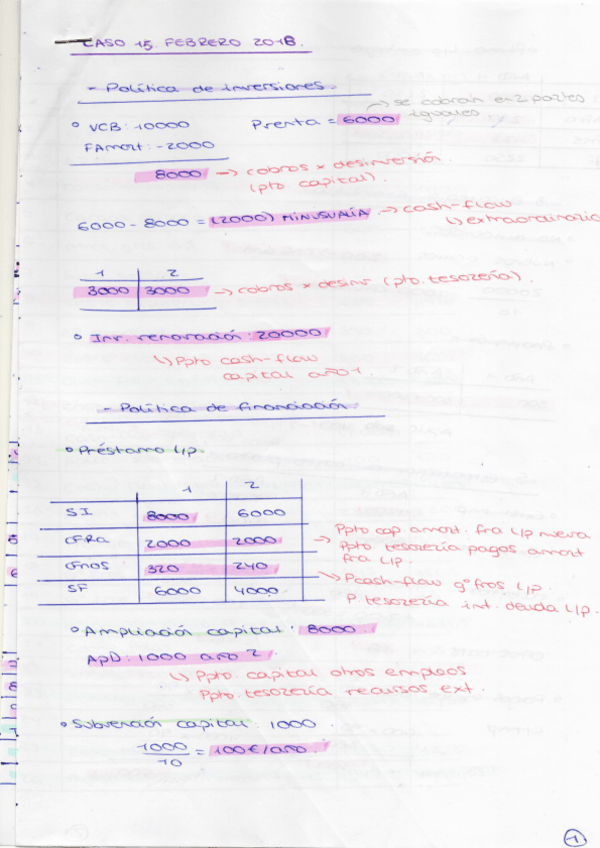 CASO 15. FEBRERO 2018.
- Política de inversiones.
se cobran en 2 partes iguales
° VCB: 10000    Prenta = 6000
FAmort: -2000
8000 → cobros x desinversión. (pto capital).
6000 - 8000 = (2000) MINUSVALÍA → cash-flow
↳ extraordinario
1 2
3000 3000 → cobros x desinv (pto. tesorería).
° Inv. renovación: 20000
↳ Ppto cash-flow
capital año 1.
- Política de financiación.
° Préstamo L/p.
1 2
SI 8000 6000
CFRa 2000 2000 → Ppto cap. amort. fra L/p nueva
Ppto tesorería pagos amort
fra L/p.
Gfnos 320 240 ↘ Pcash-flow gº fros L/p.
SF 6000 4000 P. tesorería int. deuda L/p.
° Ampliación capital: 8000
ApD: 1000 año 2.
↳ Ppto. capital otros empleos
Ppto. tesorería recursos ext.
° Subvención capital: 1000
1000
10 = 100€/año.
1